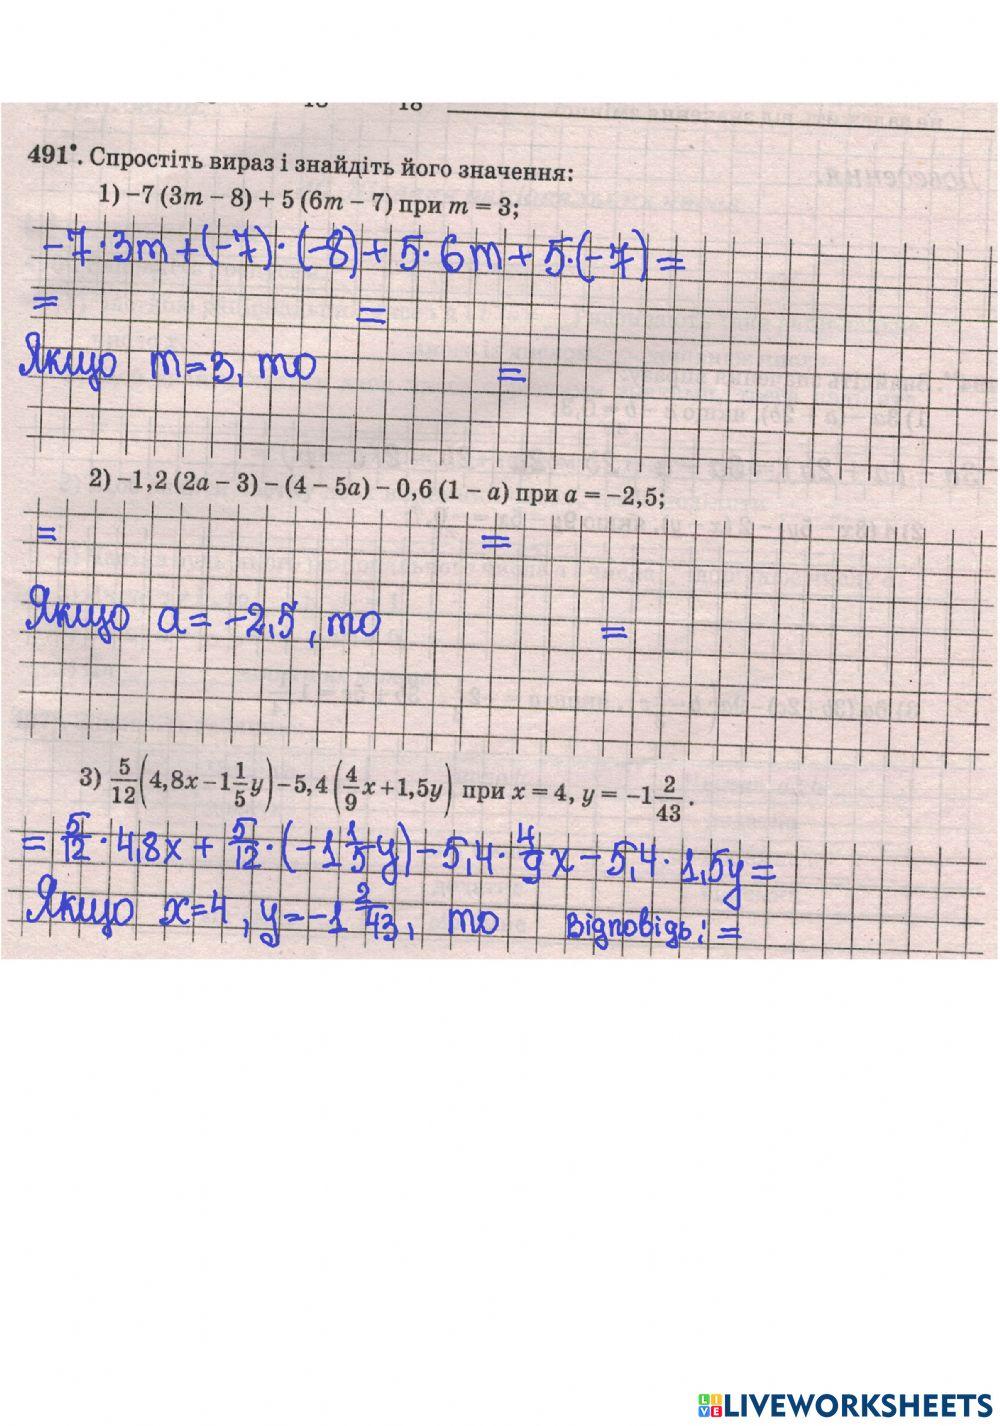 18
491°. Спростіть вираз і знайдіть його значення:
1) –7 (3m – 8) + 5 (6m – 7) при m = 3;
-7·3m+(-7)·(-8)+5·6m+5·(-7)=
= =
Якщо m=3, то =
2) –1,2 (2a – 3) – (4 – 5a) – 0,6 (1 – a) при a = –2,5;
= =
Якщо a=-2,5, то =
3) 5/12 (4,8x – 1 1/5 y) – 5,4 (4/9 x + 1,5y) при x = 4, y = –1 2/43.
= 5/12·4,8x + 5/12·(-1 1/5 y) – 5,4·4/9 x – 5,4·1,5y =
Якщо x=4, y=-1 2/43, то Відповідь: =
LIVEWORKSHEETS